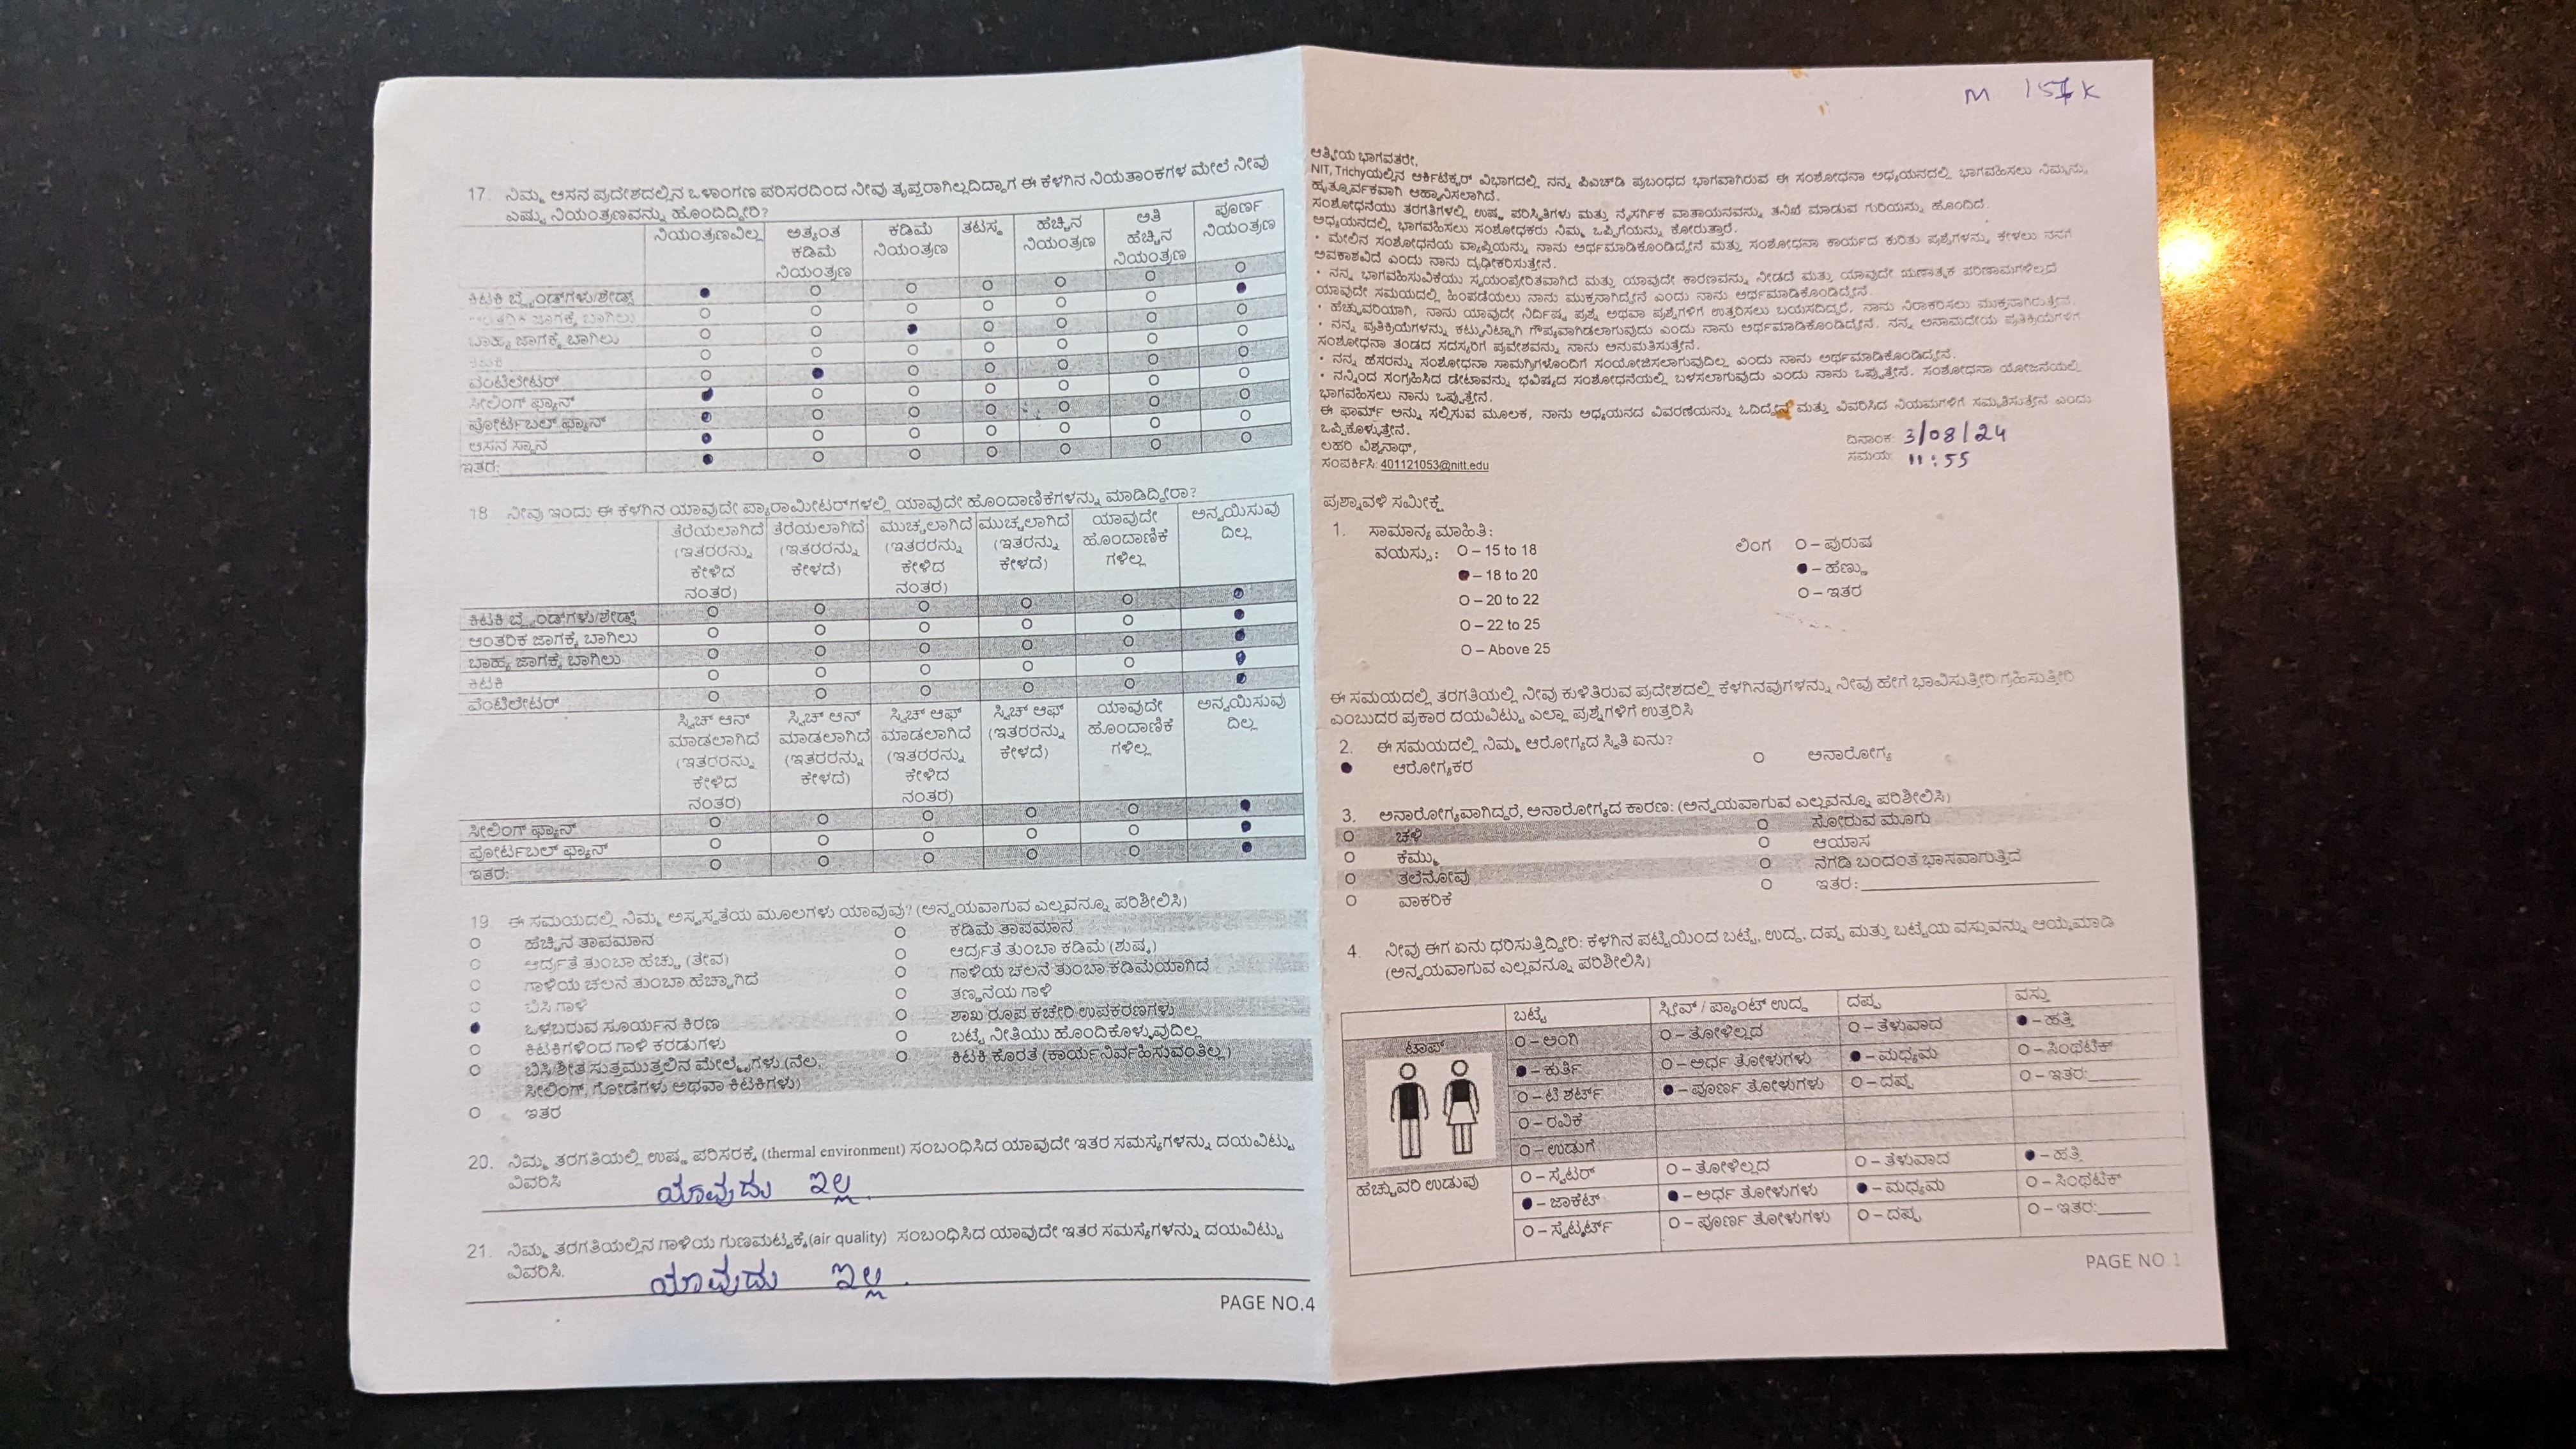 17. ನಿಮ್ಮ ಆಸನ ಪ್ರದೇಶದಲ್ಲಿನ ಒಳಾಂಗಣ ಪರಿಸರದಿಂದ ನೀವು ತೃಪ್ತರಾಗಿಲ್ಲದಿದ್ದಾಗ ಈ ಕೆಳಗಿನ ನಿಯತಾಂಕಗಳ ಮೇಲೆ ನೀವು
ಎಷ್ಟು ನಿಯಂತ್ರಣವನ್ನು ಹೊಂದಿದ್ದೀರಿ?
ನಿಯಂತ್ರಣವಿಲ್ಲ ಅತ್ಯಂತ ಕಡಿಮೆ ನಿಯಂತ್ರಣ ಕಡಿಮೆ ನಿಯಂತ್ರಣ ತಟಸ್ಥ ಹೆಚ್ಚಿನ ನಿಯಂತ್ರಣ ಅತಿ ಹೆಚ್ಚಿನ ನಿಯಂತ್ರಣ ಪೂರ್ಣ ನಿಯಂತ್ರಣ
ಕಿಟಕಿ ಬ್ಲೈಂಡ್‌ಗಳು/ಶೇಡ್ಸ್
ಜಾಗಕ್ಕೆ ಬಾಗಿಲು
ಬಾಹ್ಯ ಜಾಗಕ್ಕೆ ಬಾಗಿಲು
ವೆಂಟಿಲೇಟರ್
ಸೀಲಿಂಗ್ ಫ್ಯಾನ್
ಪೋರ್ಟಬಲ್ ಫ್ಯಾನ್
ಆಸನ ಸ್ಥಾನ
ಇತರ:
18 ನೀವು ಇಂದು ಈ ಕೆಳಗಿನ ಯಾವುದೇ ಪ್ಯಾರಾಮೀಟರ್‌ಗಳಲ್ಲಿ ಯಾವುದೇ ಹೊಂದಾಣಿಕೆಗಳನ್ನು ಮಾಡಿದ್ದೀರಾ?
ತೆರೆಯಲಾಗಿದೆ (ಇತರರನ್ನು ಕೇಳಿದ ನಂತರ) ತೆರೆಯಲಾಗಿದೆ (ಇತರರನ್ನು ಕೇಳದೆ) ಮುಚ್ಚಲಾಗಿದೆ (ಇತರರನ್ನು ಕೇಳಿದ ನಂತರ) ಮುಚ್ಚಲಾಗಿದೆ (ಇತರನ್ನು ಕೇಳದೆ) ಯಾವುದೇ ಹೊಂದಾಣಿಕೆಗಳಿಲ್ಲ ಅನ್ವಯಿಸುವುದಿಲ್ಲ
ಕಿಟಕಿ ಬ್ಲೈಂಡ್‌ಗಳು/ಶೇಡ್ಸ್
ಆಂತರಿಕ ಜಾಗಕ್ಕೆ ಬಾಗಿಲು
ಬಾಹ್ಯ ಜಾಗಕ್ಕೆ ಬಾಗಿಲು
ಕಿಟಕಿ
ವೆಂಟಿಲೇಟರ್
ಸ್ವಿಚ್ ಆನ್ ಮಾಡಲಾಗಿದೆ (ಇತರರನ್ನು ಕೇಳಿದ ನಂತರ) ಸ್ವಿಚ್ ಆನ್ ಮಾಡಲಾಗಿದೆ (ಇತರರನ್ನು ಕೇಳದೆ) ಸ್ವಿಚ್ ಆಫ್ ಮಾಡಲಾಗಿದೆ (ಇತರರನ್ನು ಕೇಳಿದ ನಂತರ) ಸ್ವಿಚ್ ಆಫ್ (ಇತರರನ್ನು ಕೇಳದೆ) ಯಾವುದೇ ಹೊಂದಾಣಿಕೆಗಳಿಲ್ಲ ಅನ್ವಯಿಸುವುದಿಲ್ಲ
ಸೀಲಿಂಗ್ ಫ್ಯಾನ್
ಪೋರ್ಟಬಲ್ ಫ್ಯಾನ್
ಇತರ:
19. ಈ ಸಮಯದಲ್ಲಿ ನಿಮ್ಮ ಅಸ್ವಸ್ಥತೆಯ ಮೂಲಗಳು ಯಾವುವು? (ಅನ್ವಯವಾಗುವ ಎಲ್ಲವನ್ನೂ ಪರಿಶೀಲಿಸಿ)
ಹೆಚ್ಚಿನ ತಾಪಮಾನ ಕಡಿಮೆ ತಾಪಮಾನ
ಆರ್ದ್ರತೆ ತುಂಬಾ ಹೆಚ್ಚು (ತೇವ) ಆರ್ದ್ರತೆ ತುಂಬಾ ಕಡಿಮೆ (ಶುಷ್ಕ)
ಗಾಳಿಯ ಚಲನೆ ತುಂಬಾ ಹೆಚ್ಚಾಗಿದೆ ಗಾಳಿಯ ಚಲನೆ ತುಂಬಾ ಕಡಿಮೆಯಾಗಿದೆ
ಬಿಸಿ ಗಾಳಿ ತಣ್ಣನೆಯ ಗಾಳಿ
ಒಳಬರುವ ಸೂರ್ಯನ ಕಿರಣ ಶಾಖ ರೂಪ ಕಚೇರಿ ಉಪಕರಣಗಳು
ಕಿಟಕಿಗಳಿಂದ ಗಾಳಿ ಕರಡುಗಳು ಬಟ್ಟೆ ನೀತಿಯು ಹೊಂದಿಕೊಳ್ಳುವುದಿಲ್ಲ
ಬಿಸಿ/ಶೀತ ಸುತ್ತಮುತ್ತಲಿನ ಮೇಲ್ಮೈಗಳು (ನೆಲ, ಕಿಟಕಿ ಕೊರತೆ (ಕಾರ್ಯನಿರ್ವಹಿಸುವಂತಿಲ್ಲ)
ಸೀಲಿಂಗ್, ಗೋಡೆಗಳು ಅಥವಾ ಕಿಟಕಿಗಳು)
ಇತರ
20. ನಿಮ್ಮ ತರಗತಿಯಲ್ಲಿ ಉಷ್ಣ ಪರಿಸರಕ್ಕೆ (thermal environment) ಸಂಬಂಧಿಸಿದ ಯಾವುದೇ ಇತರ ಸಮಸ್ಯೆಗಳನ್ನು ದಯವಿಟ್ಟು
ವಿವರಿಸಿ ಯಾವುದು ಇಲ್ಲ.
21. ನಿಮ್ಮ ತರಗತಿಯಲ್ಲಿನ ಗಾಳಿಯ ಗುಣಮಟ್ಟಕ್ಕೆ (air quality) ಸಂಬಂಧಿಸಿದ ಯಾವುದೇ ಇತರ ಸಮಸ್ಯೆಗಳನ್ನು ದಯವಿಟ್ಟು
ವಿವರಿಸಿ. ಯಾವುದು ಇಲ್ಲ.
PAGE NO.4
M K
ಆತ್ಮೀಯ ಭಾಗವತರೇ,
NIT, Trichyಯಲ್ಲಿನ ಆರ್ಕಿಟೆಕ್ಚರ್ ವಿಭಾಗದಲ್ಲಿ ನನ್ನ ಪಿಎಚ್‌ಡಿ ಪ್ರಬಂಧದ ಭಾಗವಾಗಿರುವ ಈ ಸಂಶೋಧನಾ ಅಧ್ಯಯನದಲ್ಲಿ ಭಾಗವಹಿಸಲು ನಿಮ್ಮನ್ನು
ಹೃತ್ಪೂರ್ವಕವಾಗಿ ಆಹ್ವಾನಿಸಲಾಗಿದೆ.
ಸಂಶೋಧನೆಯು ತರಗತಿಗಳಲ್ಲಿ ಉಷ್ಣ ಪರಿಸ್ಥಿತಿಗಳು ಮತ್ತು ನೈಸರ್ಗಿಕ ವಾತಾಯನವನ್ನು ತನಿಖೆ ಮಾಡುವ ಗುರಿಯನ್ನು ಹೊಂದಿದೆ.
ಅಧ್ಯಯನದಲ್ಲಿ ಭಾಗವಹಿಸಲು ಸಂಶೋಧಕರು ನಿಮ್ಮ ಒಪ್ಪಿಗೆಯನ್ನು ಕೋರುತ್ತಾರೆ.
• ಮೇಲಿನ ಸಂಶೋಧನೆಯ ವ್ಯಾಪ್ತಿಯನ್ನು ನಾನು ಅರ್ಥಮಾಡಿಕೊಂಡಿದ್ದೇನೆ ಮತ್ತು ಸಂಶೋಧನಾ ಕಾರ್ಯದ ಕುರಿತು ಪ್ರಶ್ನೆಗಳನ್ನು ಕೇಳಲು ನನಗೆ
ಅವಕಾಶವಿದೆ ಎಂದು ನಾನು ದೃಢೀಕರಿಸುತ್ತೇನೆ.
• ನನ್ನ ಭಾಗವಹಿಸುವಿಕೆಯು ಸ್ವಯಂಪ್ರೇರಿತವಾಗಿದೆ ಮತ್ತು ಯಾವುದೇ ಕಾರಣವನ್ನು ನೀಡದೆ ಮತ್ತು ಯಾವುದೇ ಋಣಾತ್ಮಕ ಪರಿಣಾಮಗಳಿಲ್ಲದೆ
ಯಾವುದೇ ಸಮಯದಲ್ಲಿ ಹಿಂಪಡೆಯಲು ನಾನು ಮುಕ್ತನಾಗಿದ್ದೇನೆ ಎಂದು ನಾನು ಅರ್ಥಮಾಡಿಕೊಂಡಿದ್ದೇನೆ.
• ಹೆಚ್ಚುವರಿಯಾಗಿ, ನಾನು ಯಾವುದೇ ನಿರ್ದಿಷ್ಟ ಪ್ರಶ್ನೆ ಅಥವಾ ಪ್ರಶ್ನೆಗಳಿಗೆ ಉತ್ತರಿಸಲು ಬಯಸದಿದ್ದರೆ, ನಾನು ನಿರಾಕರಿಸಲು ಮುಕ್ತನಾಗಿರುತ್ತೇನೆ.
• ನನ್ನ ಪ್ರತಿಕ್ರಿಯೆಗಳನ್ನು ಕಟ್ಟುನಿಟ್ಟಾಗಿ ಗೌಪ್ಯವಾಗಿಡಲಾಗುವುದು ಎಂದು ನಾನು ಅರ್ಥಮಾಡಿಕೊಂಡಿದ್ದೇನೆ. ನನ್ನ ಅನಾಮಧೇಯ ಪ್ರತಿಕ್ರಿಯೆಗಳಿಗೆ
ಸಂಶೋಧನಾ ತಂಡದ ಸದಸ್ಯರಿಗೆ ಪ್ರವೇಶವನ್ನು ನಾನು ಅನುಮತಿಸುತ್ತೇನೆ.
• ನನ್ನ ಹೆಸರನ್ನು ಸಂಶೋಧನಾ ಸಾಮಗ್ರಿಗಳೊಂದಿಗೆ ಸಂಯೋಜಿಸಲಾಗುವುದಿಲ್ಲ ಎಂದು ನಾನು ಅರ್ಥಮಾಡಿಕೊಂಡಿದ್ದೇನೆ.
• ನನ್ನಿಂದ ಸಂಗ್ರಹಿಸಿದ ಡೇಟಾವನ್ನು ಭವಿಷ್ಯದ ಸಂಶೋಧನೆಯಲ್ಲಿ ಬಳಸಲಾಗುವುದು ಎಂದು ನಾನು ಒಪ್ಪುತ್ತೇನೆ. ಸಂಶೋಧನಾ ಯೋಜನೆಯಲ್ಲಿ
ಭಾಗವಹಿಸಲು ನಾನು ಒಪ್ಪುತ್ತೇನೆ.
ಈ ಫಾರ್ಮ್ ಅನ್ನು ಸಲ್ಲಿಸುವ ಮೂಲಕ, ನಾನು ಅಧ್ಯಯನದ ವಿವರಣೆಯನ್ನು ಓದಿದ್ದೇನೆ ಮತ್ತು ವಿವರಿಸಿದ ನಿಯಮಗಳಿಗೆ ಸಮ್ಮತಿಸುತ್ತೇನೆ ಎಂದು
ಒಪ್ಪಿಕೊಳ್ಳುತ್ತೇನೆ.
ಲಹರಿ ವಿಶ್ವನಾಥ್,
ಸಂಪರ್ಕಿಸಿ: 401121053@nitt.edu
ದಿನಾಂಕ: 3/08/24
ಸಮಯ: 11:55
ಪ್ರಶ್ನಾವಳಿ ಸಮೀಕ್ಷೆ
1. ಸಾಮಾನ್ಯ ಮಾಹಿತಿ:
ವಯಸ್ಸು: O – 15 to 18 ಲಿಂಗ O – ಪುರುಷ
– 18 to 20 – ಹೆಣ್ಣು
O – 20 to 22 O – ಇತರ
O – 22 to 25
O – Above 25
ಈ ಸಮಯದಲ್ಲಿ ತರಗತಿಯಲ್ಲಿ ನೀವು ಕುಳಿತಿರುವ ಪ್ರದೇಶದಲ್ಲಿ ಕೆಳಗಿನವುಗಳನ್ನು ನೀವು ಹೇಗೆ ಭಾವಿಸುತ್ತೀರಿ/ಗ್ರಹಿಸುತ್ತೀರಿ
ಎಂಬುದರ ಪ್ರಕಾರ ದಯವಿಟ್ಟು ಎಲ್ಲಾ ಪ್ರಶ್ನೆಗಳಿಗೆ ಉತ್ತರಿಸಿ
2. ಈ ಸಮಯದಲ್ಲಿ ನಿಮ್ಮ ಆರೋಗ್ಯದ ಸ್ಥಿತಿ ಏನು?
ಆರೋಗ್ಯಕರ ಅನಾರೋಗ್ಯ
3. ಅನಾರೋಗ್ಯವಾಗಿದ್ದರೆ, ಅನಾರೋಗ್ಯದ ಕಾರಣ: (ಅನ್ವಯವಾಗುವ ಎಲ್ಲವನ್ನೂ ಪರಿಶೀಲಿಸಿ)
ಚಳಿ ಸೋರುವ ಮೂಗು
ಕೆಮ್ಮು ಆಯಾಸ
ತಲೆನೋವು ನೆಗಡಿ ಬಂದಂತೆ ಭಾಸವಾಗುತ್ತಿದೆ
ವಾಕರಿಕೆ ಇತರ:
4. ನೀವು ಈಗ ಏನು ಧರಿಸುತ್ತಿದ್ದೀರಿ: ಕೆಳಗಿನ ಪಟ್ಟಿಯಿಂದ ಬಟ್ಟೆ, ಉದ್ದ, ದಪ್ಪ ಮತ್ತು ಬಟ್ಟೆಯ ವಸ್ತುವನ್ನು ಆಯ್ಕೆಮಾಡಿ
(ಅನ್ವಯವಾಗುವ ಎಲ್ಲವನ್ನೂ ಪರಿಶೀಲಿಸಿ)
ಬಟ್ಟೆ ಸ್ಲೀವ್ / ಪ್ಯಾಂಟ್ ಉದ್ದ ದಪ್ಪ ವಸ್ತು
ಟಾಪ್ O – ಅಂಗಿ O – ತೋಳಿಲ್ಲದ O – ತೆಳುವಾದ – ಹತ್ತಿ
– ಕುರ್ತಿ O – ಅರ್ಧ ತೋಳುಗಳು – ಮಧ್ಯಮ O – ಸಿಂಥೆಟಿಕ್
O – ಟಿ ಶರ್ಟ್ – ಪೂರ್ಣ ತೋಳುಗಳು O – ದಪ್ಪ O – ಇತರ:
O – ರವಿಕೆ
O – ಉಡುಗೆ
ಹೆಚ್ಚುವರಿ ಉಡುಪು O – ಸ್ವೆಟರ್ O – ತೋಳಿಲ್ಲದ O – ತೆಳುವಾದ – ಹತ್ತಿ
– ಜಾಕೆಟ್ – ಅರ್ಧ ತೋಳುಗಳು – ಮಧ್ಯಮ O – ಸಿಂಥೆಟಿಕ್
O – ಸ್ವೆಟ್ಶರ್ಟ್ O – ಪೂರ್ಣ ತೋಳುಗಳು O – ದಪ್ಪ O – ಇತರ:
PAGE NO.1